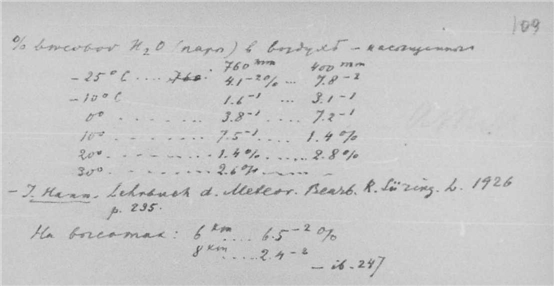 109
% весовой H₂O (пары) в воздухѣ – насыщенного
760 mm 400 mm
–25° C .... 4.1⁻²% ... 7.8⁻²
–10° C 1.6⁻¹ ... 3.1⁻¹
0° ........ 3.8⁻¹ .... 7.2⁻¹
10° ........ 7.5⁻¹ .... 1.4%
20° ........ 1.4% .... 2.8%
30° ........ 2.6%
– J. Hann. Lehrbuch d. Meteor. Bearb. R. Süring. L. 1926
p. 235.
На высотах: 6 km .... 6.5⁻²%
8 km .... 2.4⁻²
– ib. 247